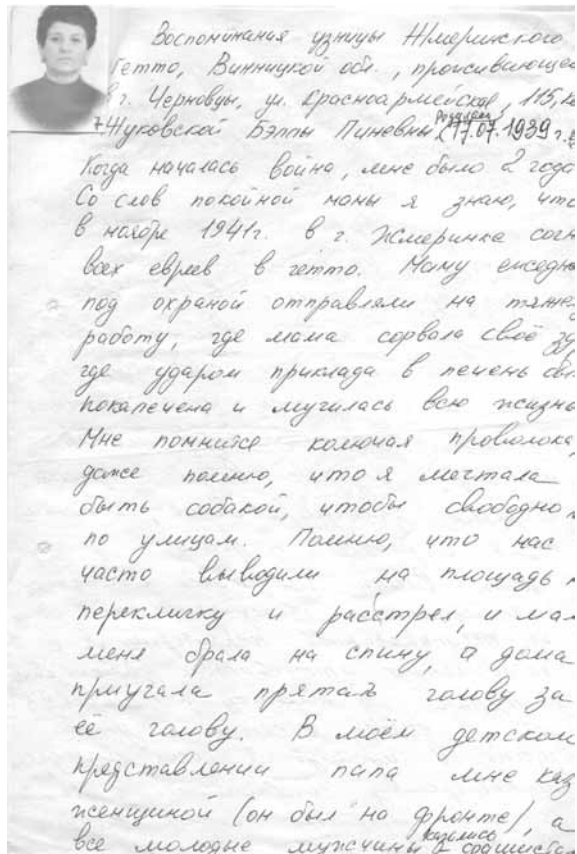 Воспоминания узницы Жмеринского
гетто, Винницкой обл., проживающей
в г. Черновцы, ул. Красноармейская, 115, кв
7. Жуковской Бэллы Пиневны, родилась 17.07.1939 г.
Когда началась война, мне было 2 года
Со слов покойной мамы я знаю, что
в ноябре 1941г. в г. Жмеринка согн
всех евреев в гетто. Маму ежедне
под охраной отправляли на тяжел
работу, где мама сорвала своё зд
где ударом приклада в печень был
покалечена и мучилась всю жизнь
Мне помнится колючая проволока,
даже помню, что я мечтала
быть собакой, чтобы свободно
по улицам. Помню, что нас
часто выводили на площадь н
перекличку и расстрел, и мам
меня брала на спину, а дома
приучала прятать голову за
её голову. В моём детском
представлении папа мне каз
женщиной (он был на фронте), а
все молодые мужчины казались фашистам